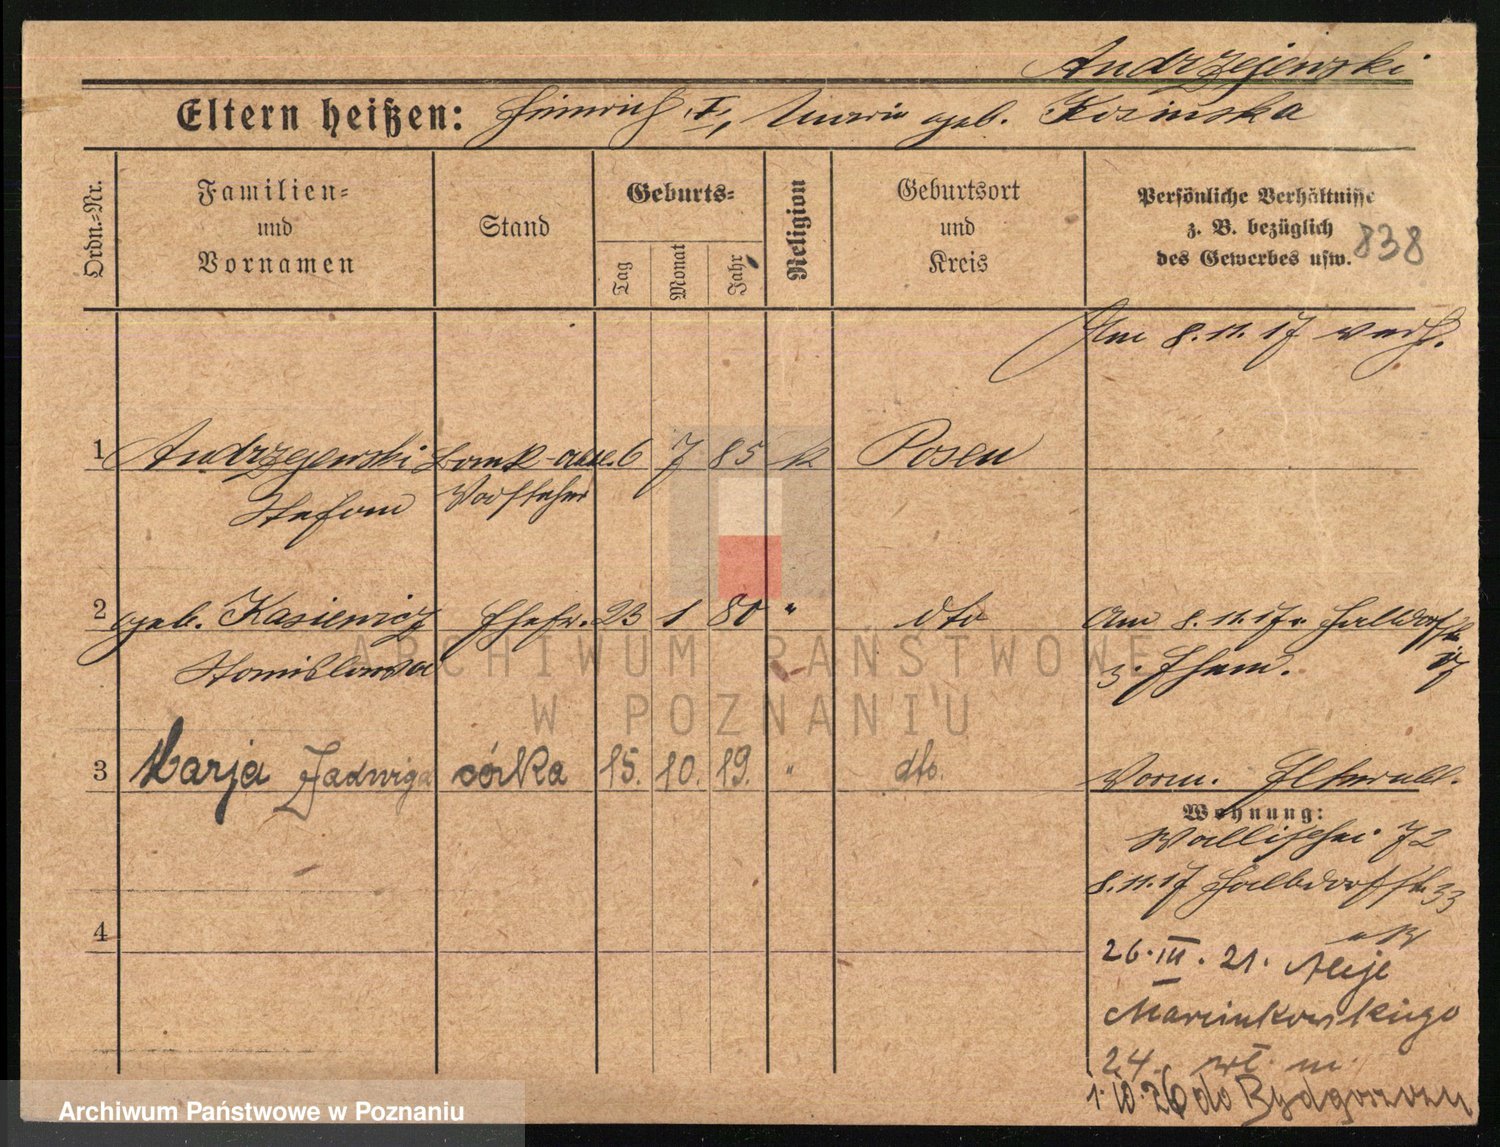 Andrzejewski
Eltern heißen: Heinrich I, Maria geb. Kosinska
Ordn.-Nr.
Familien-
und
Vornamen
Stand
Geburts-
Tag
Monat
Jahr
Religion
Geburtsort
und
Kreis
Persönliche Verhältnisse
z. B. bezüglich
des Gewerbes usw.
838
Am 8.11.17 verh.
1 Andrzejewski Bank-abtl. 6 7 85 k Posen
Stefan Vorsteher
2 geb. Kasiewicz Ehefr. 23 1 80 " dto Am 8.11.17 v. Halbdorfstr.
Stanislawa z. Ehem.
3 Marja Jadwiga córka 15. 10. 19. " dto. Vorm.
Wohnung:
Wallischei 72
8.11.17 Halbdorfstr. 33
4
26.III.21. Aleje
Marcinkowskiego
24. wł. m.
1.10.26 do Bydgoszczy
ARCHIWUM PAŃSTWOWE
W POZNANIU
Archiwum Państwowe w Poznaniu